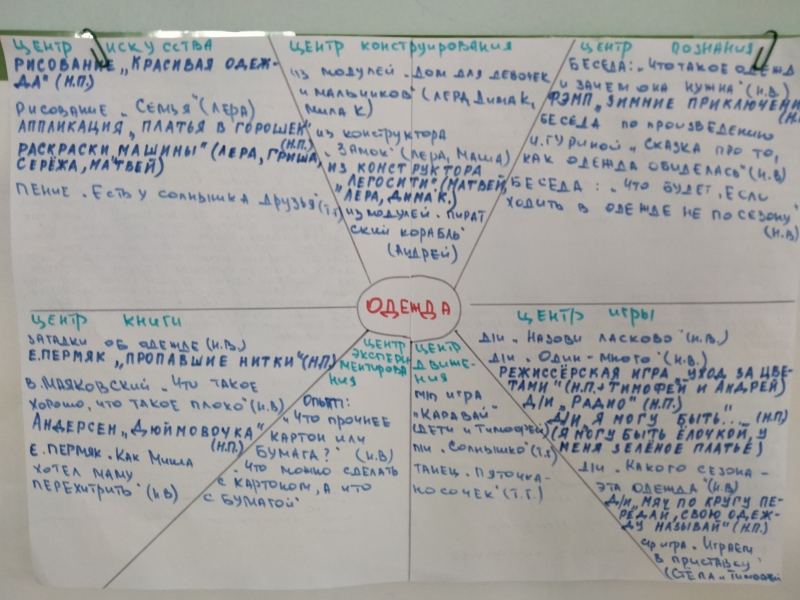 ЦЕНТР ИСКУССТВА
РИСОВАНИЕ „КРАСИВАЯ ОДЕЖ-
ДА" (Н.П.)
РИСОВАНИЕ „СЕМЬЯ" (ЛЕРА)
АППЛИКАЦИЯ „ПЛАТЬЯ В ГОРОШЕК"
(Н.П.)
РАСКРАСКИ „МАШИНЫ" (ЛЕРА, ГРИША,
СЕРЁЖА, МАТВЕЙ)
ПЕНИЕ „ЕСТЬ У СОЛНЫШКА ДРУЗЬЯ" (Т.Г.)
ЦЕНТР КОНСТРУИРОВАНИЯ
ИЗ МОДУЛЕЙ „ДОМ ДЛЯ ДЕВОЧЕК
И МАЛЬЧИКОВ" (ЛЕРА, ДИМА К,
МИЛА К)
ИЗ КОНСТРУКТОРА
„ЗАМОК" (ЛЕРА, МАША)
ИЗ КОНСТРУКТОРА
„ЛЕГОСИТИ" (МАТВЕЙ,
ЛЕРА, ДИМА К.)
ИЗ МОДУЛЕЙ „ПИРАТ
СКИЙ КОРАБЛЬ"
(АНДРЕЙ)
ЦЕНТР ПОЗНАНИЯ
БЕСЕДА: „ЧТО ТАКОЕ ОДЕЖД
И ЗАЧЕМ ОНА НУЖНА" (Н.В)
ФЭМП „ЗИМНИЕ ПРИКЛЮЧЕНИ
(Н.
БЕСЕДА ПО ПРОИЗВЕДЕНИЮ
И.ГУРИНОЙ „СКАЗКА ПРО ТО,
КАК ОДЕЖДА ОБИДЕЛАСЬ" (Н.В)
БЕСЕДА: „ЧТО БУДЕТ, ЕСЛИ
ХОДИТЬ В ОДЕЖДЕ НЕ ПО СЕЗОНУ"
(Н.В)
ОДЕЖДА
ЦЕНТР КНИГИ
ЗАГАДКИ ОБ ОДЕЖДЕ (Н.В.)
Е.ПЕРМЯК „ПРОПАВШИЕ НИТКИ" (Н.П)
В.МАЯКОВСКИЙ „ЧТО ТАКОЕ
ХОРОШО, ЧТО ТАКОЕ ПЛОХО" (Н.В)
АНДЕРСЕН „ДЮЙМОВОЧКА"
(Н.П.)
Е.ПЕРМЯК „КАК МИША
ХОТЕЛ МАМУ
ПЕРЕХИТРИТЬ" (Н.В)
ЦЕНТР
ЭКСПЕРИ
МЕНТИРОВА
НИЯ
ОПЫТ:
„ЧТО ПРОЧНЕЕ
КАРТОН ИЛИ
БУМАГА?" (Н.В)
„ЧТО МОЖНО СДЕЛАТЬ
С КАРТОНОМ, А ЧТО
С БУМАГОЙ"
ЦЕНТР
ДВИЖЕ-
НИЯ
М/П ИГРА
„КАРАВАЙ"
(ДЕТИ И ТИМОФЕЙ)
ПИ „СОЛНЫШКО" (Т.Г.)
ТАНЕЦ „ПЯТОЧКА-
НОСОЧЕК" (Т.Г.)
ЦЕНТР ИГРЫ
Д/И „НАЗОВИ ЛАСКОВО" (Н.В.)
Д/И „ОДИН-МНОГО" (Н.В.)
РЕЖИССЁРСКАЯ ИГРА „УХОД ЗА ЦВЕ-
ТАМИ" (Н.П.+ТИМОФЕЙ И АНДРЕЙ)
Д/И „РАДИО" (Н.П.)
Д/И „Я МОГУ БЫТЬ..." (Н.П)
(Я МОГУ БЫТЬ ЁЛОЧКОЙ, У
МЕНЯ ЗЕЛЁНОЕ ПЛАТЬЕ)
Д/И „КАКОГО СЕЗОНА -
ЭТА ОДЕЖДА" (Н.В)
Д/И „МЯЧ ПО КРУГУ ПЕ-
РЕДАЙ, СВОЮ ОДЕЖ-
ДУ НАЗЫВАЙ" (Н.П.)
ИГРА „ИГРАЕМ
В ПРИСТАВКУ"
(СТЁПА и ТИМОФЕЙ